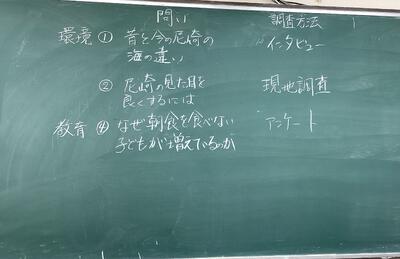 問い 調査方法
環境 ① 昔と今の尼崎の インタビュー
海の違い
② 尼崎の見た目を 現地調査
良くするには
教育 ④ なぜ朝食を食べない アンケート
子どもが増えているのか